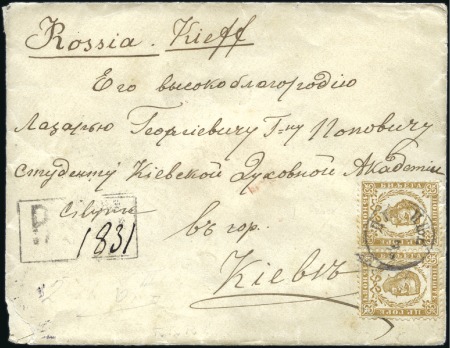 Rossia. Kieff
Его высокоблагородію
Лазарью Георгіевичу Г-ну Поповичу
студенту Кіевской Духовной Академіи
R
1831
въ гор.
Кіевъ